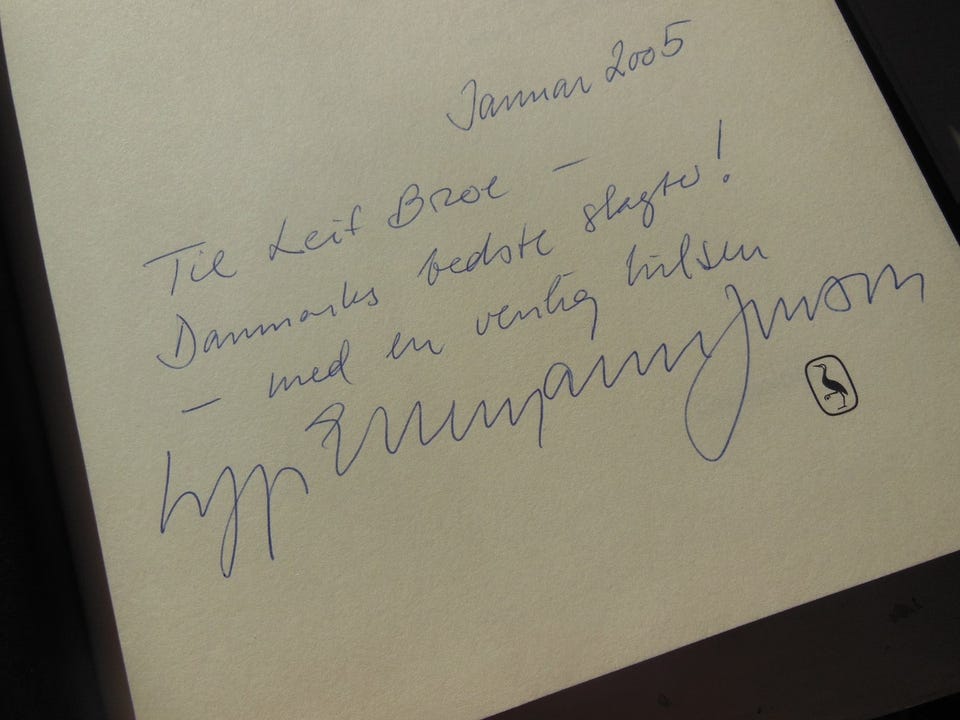 Januar 2005
Til Leif Broe –
Danmarks bedste slagter!
– med en venlig hilsen
Uffe Ellemann Jensen